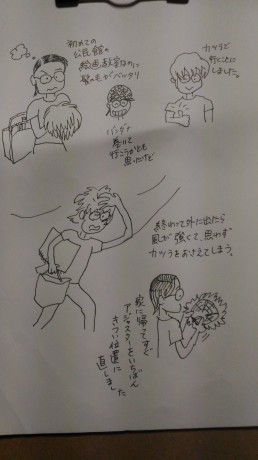 初めての
公民館の
絵画教室なのに
髪の毛がベッタリ
バンダナ
巻いて
行こうかとも
思ったけど
カツラで
行くことに
しました。
終わって外に出たら
風が強くて、思わず
カツラをおさえてしまう。
家に帰ってすぐ
アジャスターをいちばん
きつい位置に
直しました